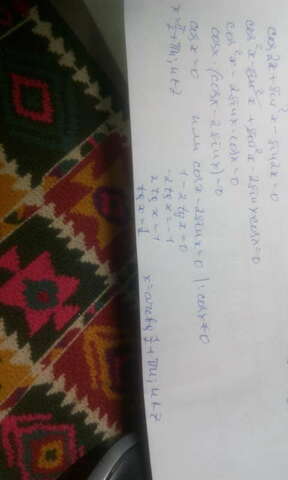 cos2x+sin²x-sin2x=0
cos²x-sin²x+sin²x-2sinxcosx=0
cos²x-2sinx·cosx=0
cosx·(cosx-2sinx)=0
cosx=0 или cosx-2sinx=0 |:cosx≠0
x=π/2+πn; n∈Z 1-2tgx=0
-2tgx=-1
2tgx=1
tgx=1/2
x=arctg 1/2+πn; n∈Z